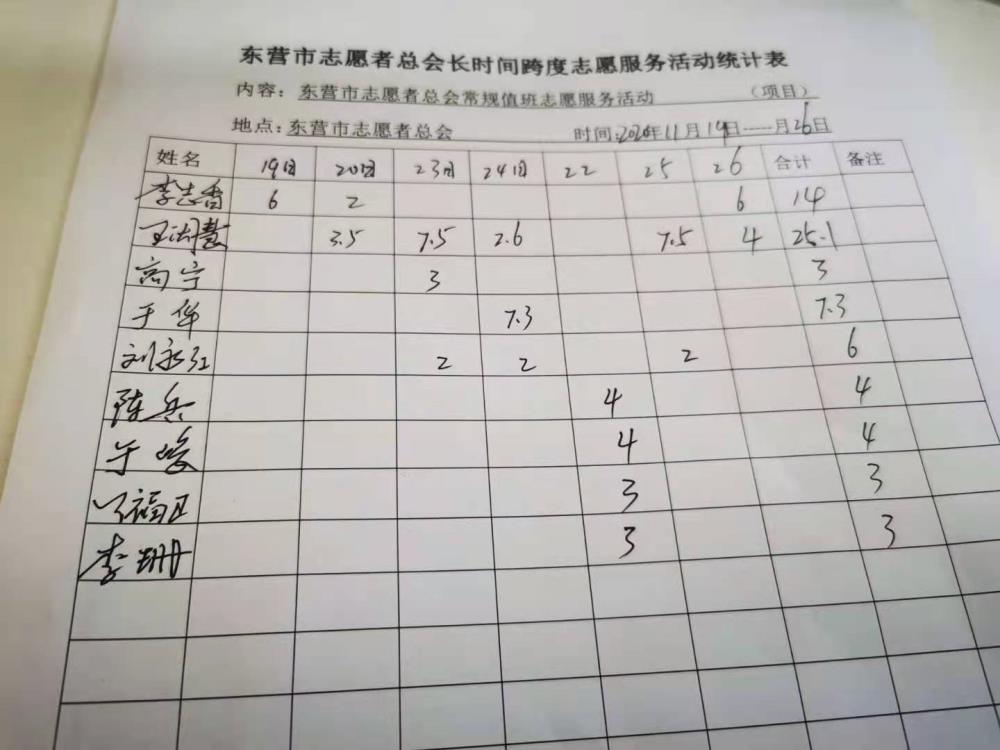 东营市志愿者总会长时间跨度志愿服务活动统计表
内容：东营市志愿者总会常规值班志愿服务活动 （项目）
地点：东营市志愿者总会 时间：2020年11月19日-----月26日
姓名 19日 20日 23日 24日 22 25 26 合计 备注
李志香 6 2 6 14
3.5 7.5 2.6 7.5 4 25.1
高宁 3 3
于华 7.3 7.3
刘永红 2 2 2 6
陈兵 4 4
于 4 4
福 3 3
李珊 3 3